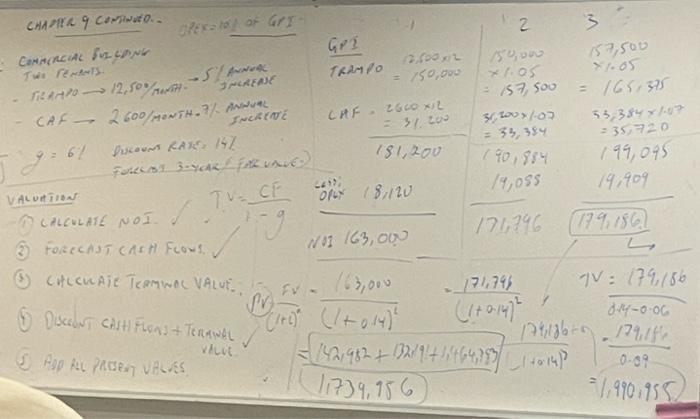 CHAPTER 9 CONTINUED.-
OPEX = 10% OF GPI
COMMERCIAL BUILDING
TWO TENANTS.
- TRAMPO → 12,500/MONTH. → 5% ANNUAL INCREASE
- CAF → 2600/MONTH. 7% ANNUAL INCREASE
g = 6% DISCOUNT RATE: 14%
FORECAST 3-YEAR
VALUATION
TV = CF
- g
① CALCULATE NOI. ✓
② FORECAST CASH FLOWS. ✓
③ CALCULATE TERMINAL VALUE.
④ DISCOUNT CASH FLOWS + TERMINAL VALUE. ✓
⑤ ADD ALL PRESENT VALUES.
PV FV
1 2 3
GPI
TRAMPO 12,500 x12 = 150,000
150,000 x1.05 = 157,500
157,500 x1.05 = 165,375
CAF - 2600 x12 = 31,200
31,200x1.07 = 33,384
33,384x1.07 = 35,720
181,200 190,884 199,095
LESS: OPEX 18,120 19,088 19,909
NOI 163,000 171,796 179,186
= 163,000 = 171,796 TV = 179,186
(1+0.14) (1+0.14)² 0.14-0.06
(1+0.14)³
= 142,982 + 132,191 + 1,464,783
1,739,956